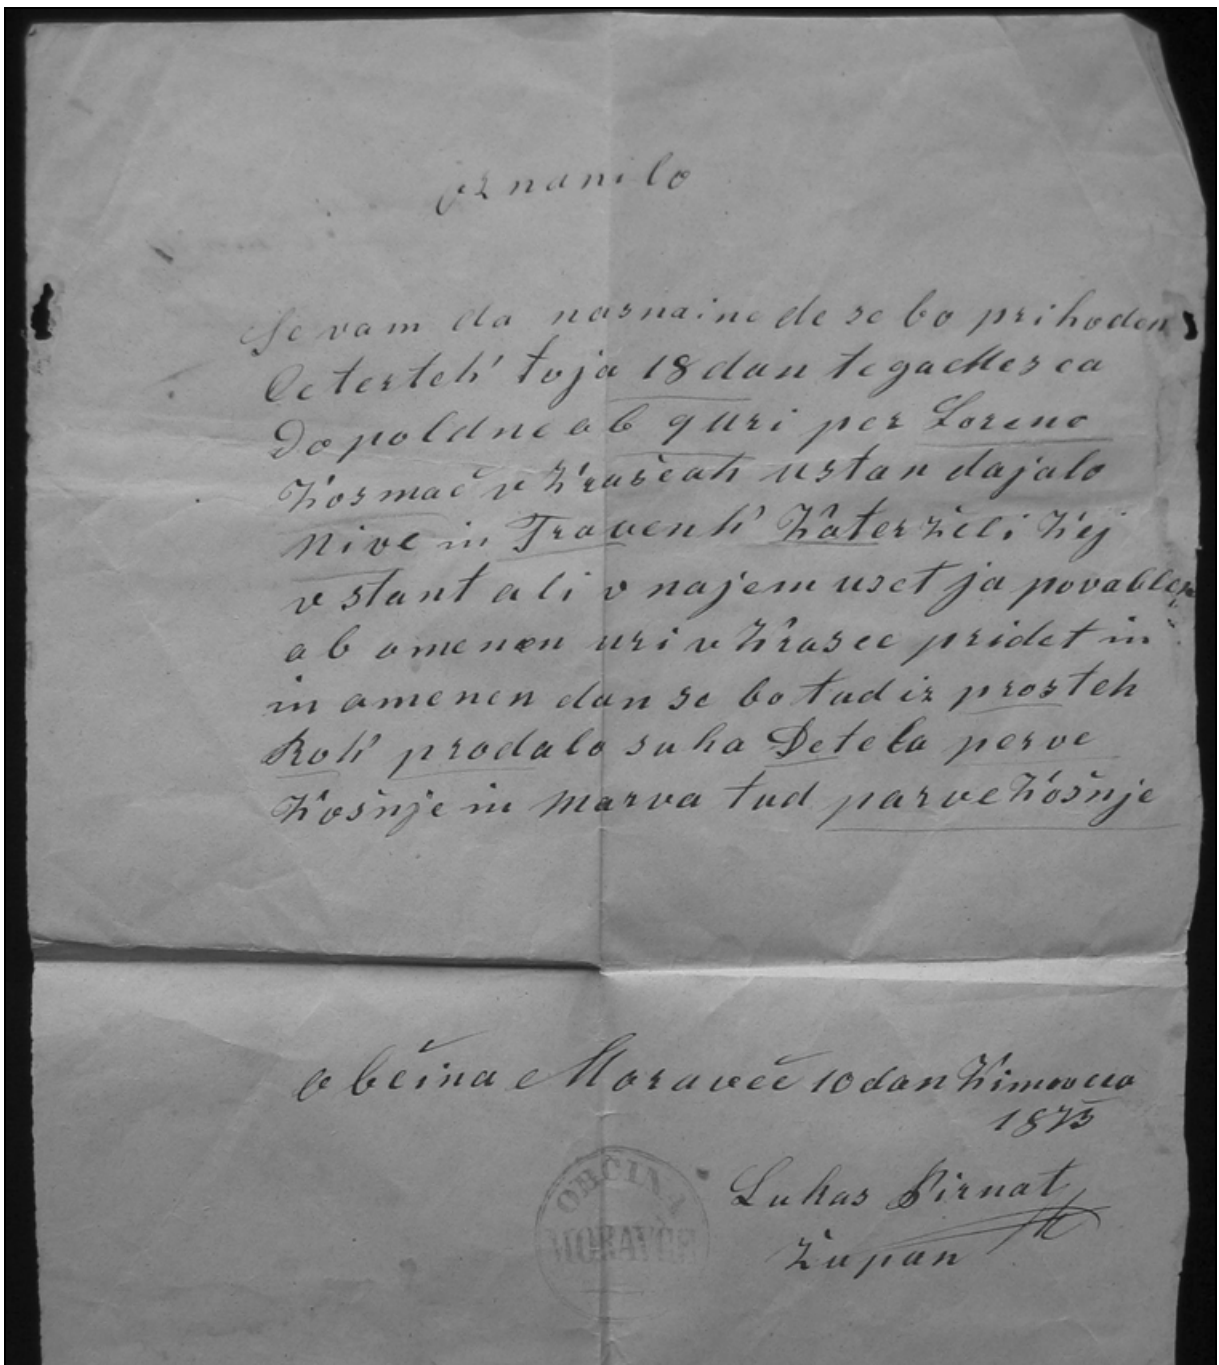 oznanilo
Se vam da nasnaine de se bo prihoden
Četertek toja 18 dan tega Mesca
Dopoldne ob 9 uri per Loreno
Kosmač v Krašcah ustan dajalo
Nive in Travenk Kater želi kej
v stant ali v najem uset ja povablen
ob omenen uri v Krasce pridet in
in omenen dan se bo tud iz prosteh
Rok prodalo suha Detela perve
Košnje in Marva tud parve Košnje
občina Moravče 10 dan Kimovca
1873
Lukas Pirnat
Župan
OBČINA
MORAVČE